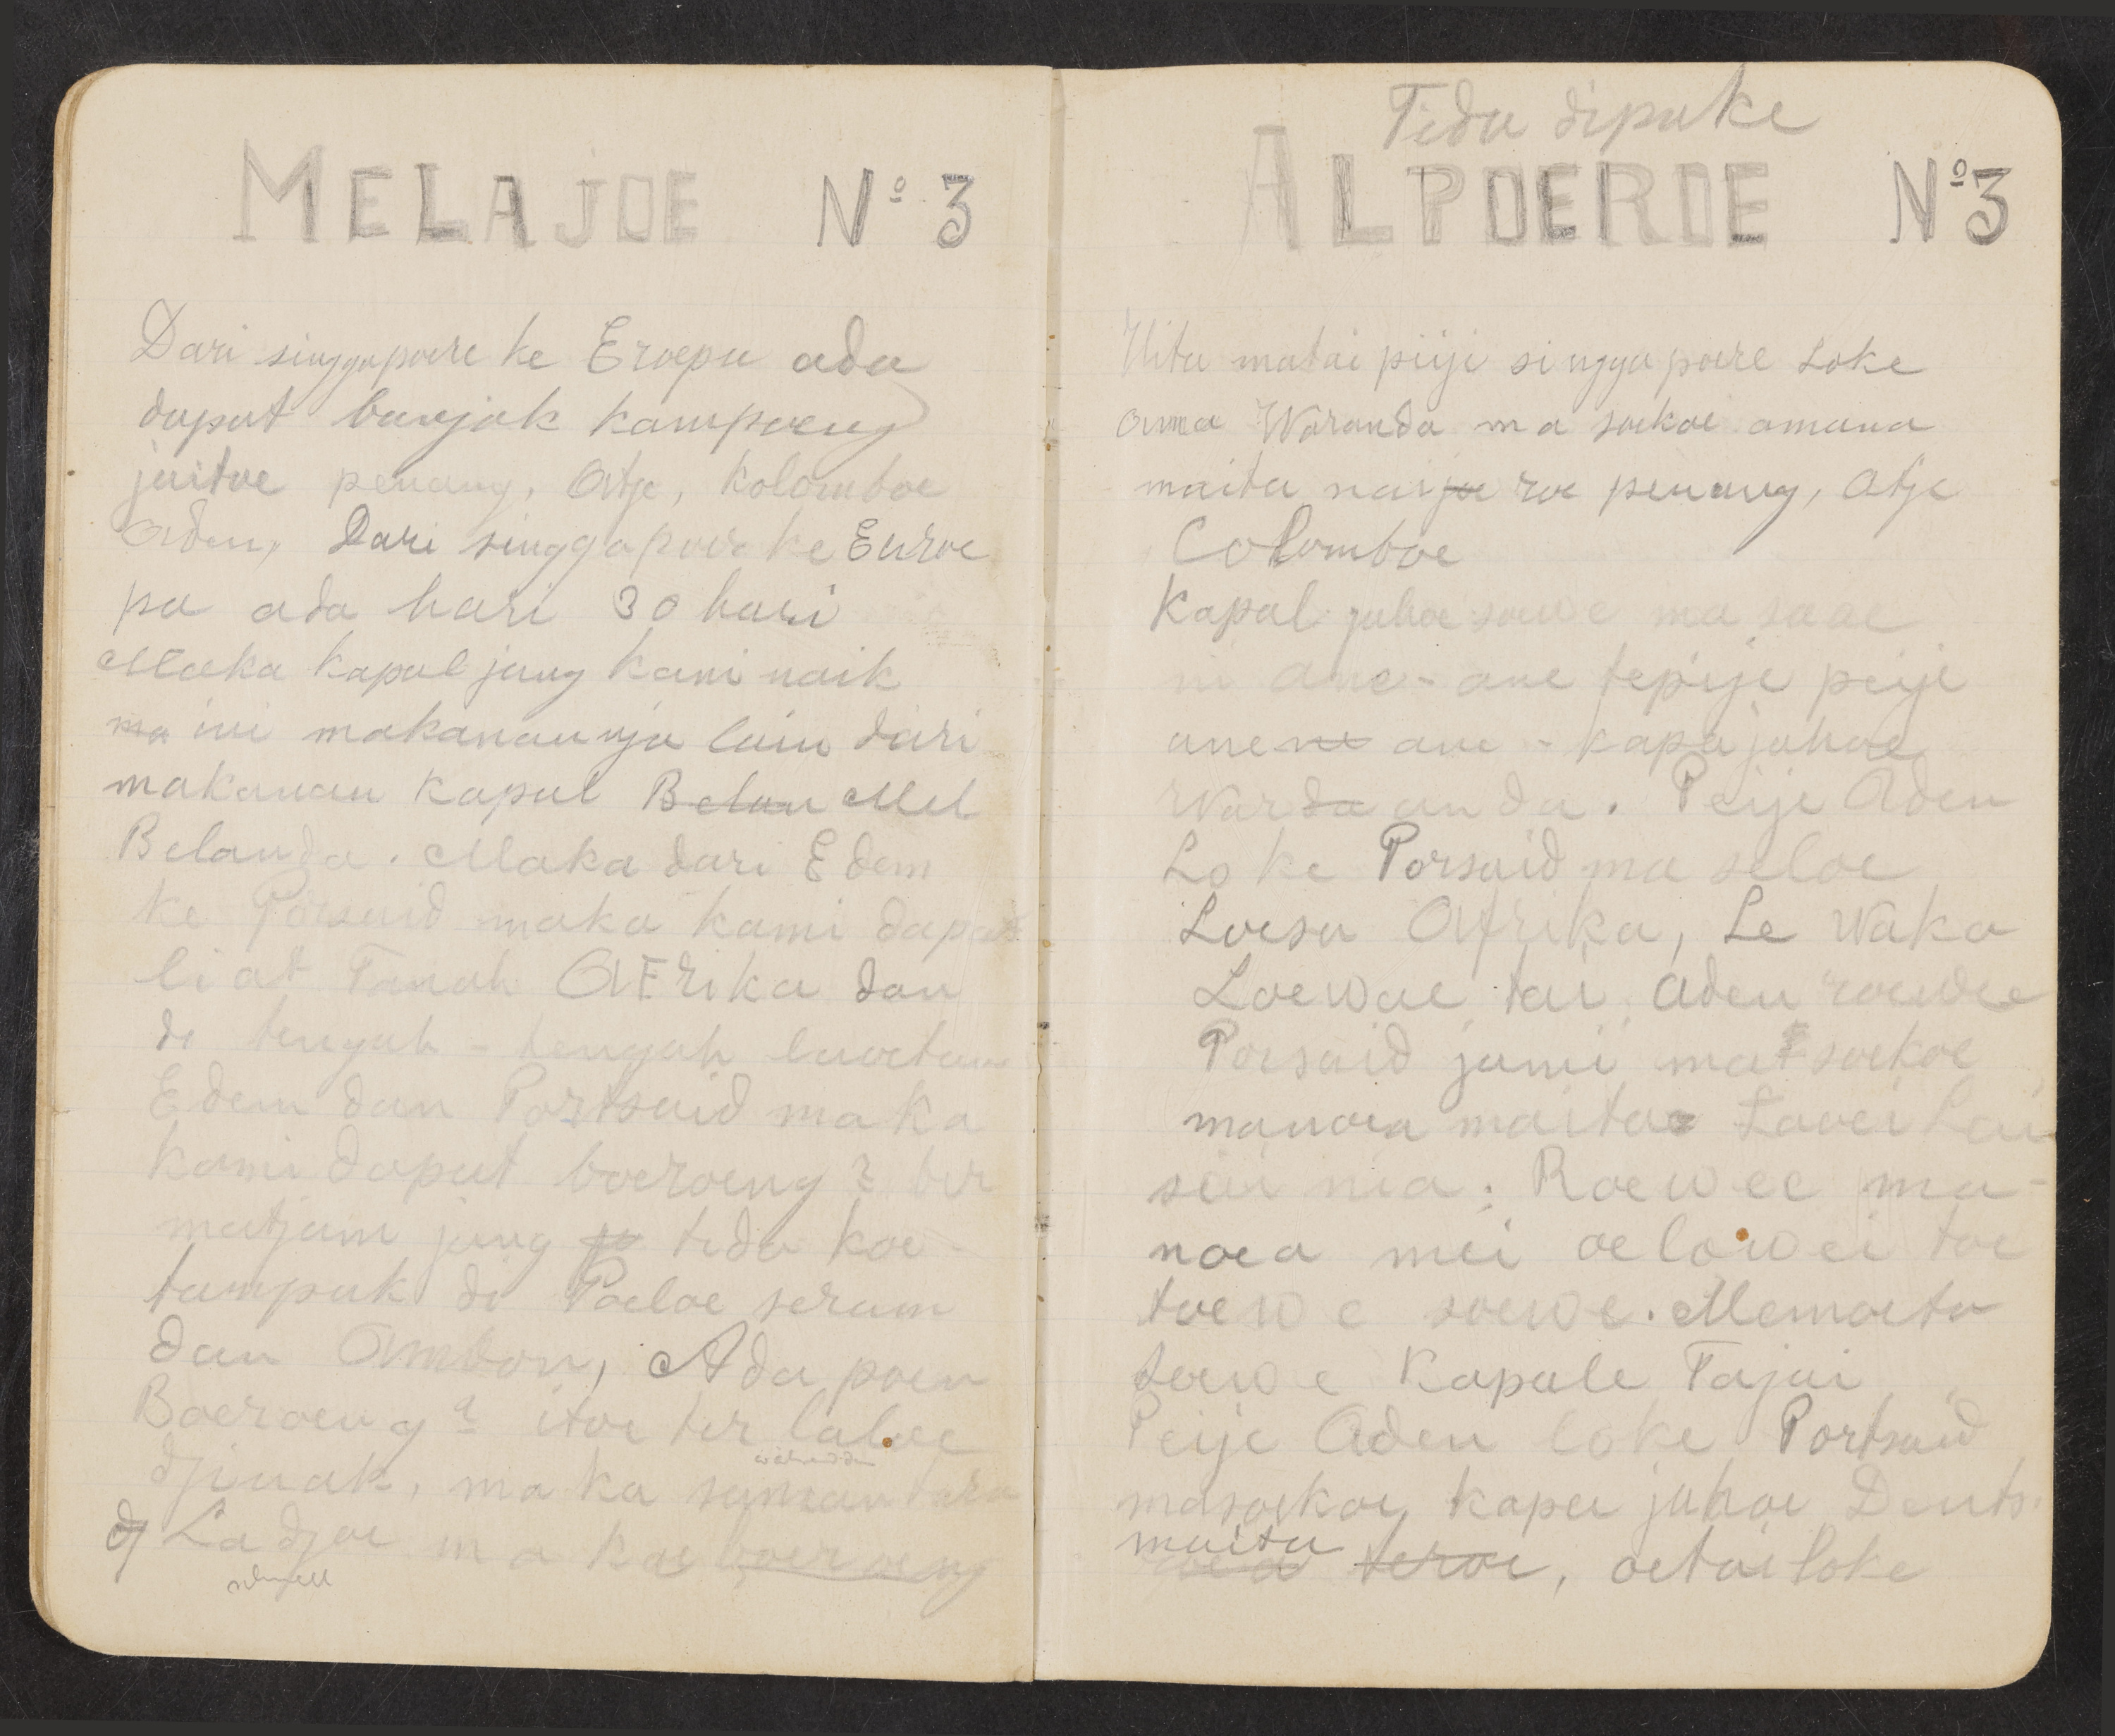 MELAJOE No 3
Dari singgapoere ke Eroepa ada
dapat banjak kampoeng
jaitoe penang, Atje, Kolomboe
Aden, Dari singgapoere ke Euroe
pa ada hari 30 hari
Maka kapal jang kami naik
ma ini makanannja lain dari
makanan kapal Belan Mel
Belanda. Maka dari Edem
ke Porsaid maka kami dapat
liat Tanah AFrika dan
di tengah - tengah lauoetan
Edem dan Portsaid maka
kami dapat boeroeng 2 ber
matjam jang tida koe
tampak di Poeloe seram
dan Ambon, Ada poen
Boeroeng 2 itoe ter laloe
djinak, maka samantara
dj Ladjoe maka boeroeng
schnell
Tida dipake
ALPOEROE No 3
Hita matai piije singgapoere Loke
Oma Waranda ma soekoe amana
maita nai roe penang, Atje
Colomboe
Kapal jahoe souwe ma saae
ni ane - ane pepije peije
ane ne ane - kapa jahoe
Warda anda. Peije Aden
Loke Porsaid ma seloe
Loesa Afrika, Le Waka
Loewae tai Aden roewee
Porsaid jami mat soekoe
manoea maitoe Loeei Lai
sai nia. Roewee ma-
noea mei oelowei toe
toewe soewe. Memoeta
Loewe Kapale Tajai
Peije Aden loke Portsaid
masoekoe kapa jahoe Deuts.
maita teroe, oetai loke